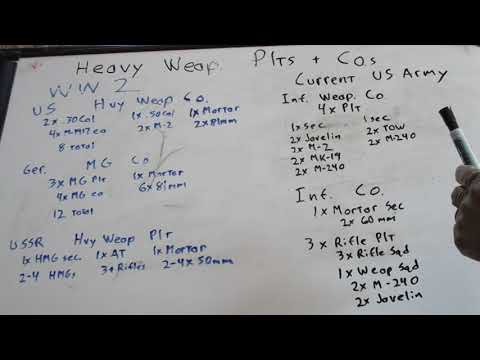 Heavy Weap. Plts + Cos
WW 2
US Hvy Weap Co.
2x .30Cal 1x .50Cal 1x Mortar
4x M-1917 ea 2x M-2 2x 81mm
8 Total
Ger. MG Co
3x MG Plt 1x Mortar
4x MG ea 6x 81mm
12 Total
USSR Hvy Weap Plt
1x HMG sec. 1x AT 1x Mortar
2-4 HMGs 3+ Rifles 2-4x 50mm
Current US Army
Inf. Weap. Co
4x Plt
1x sec 1x sec
2x Javelin 2x TOW
2x M-2 2x M-240
2x MK-19
2x M-240
Inf. Co.
1x Mortar Sec
2x 60mm
3x Rifle Plt
3x Rifle Sqd
1x Weap Sqd
2x M-240
2x Javelin